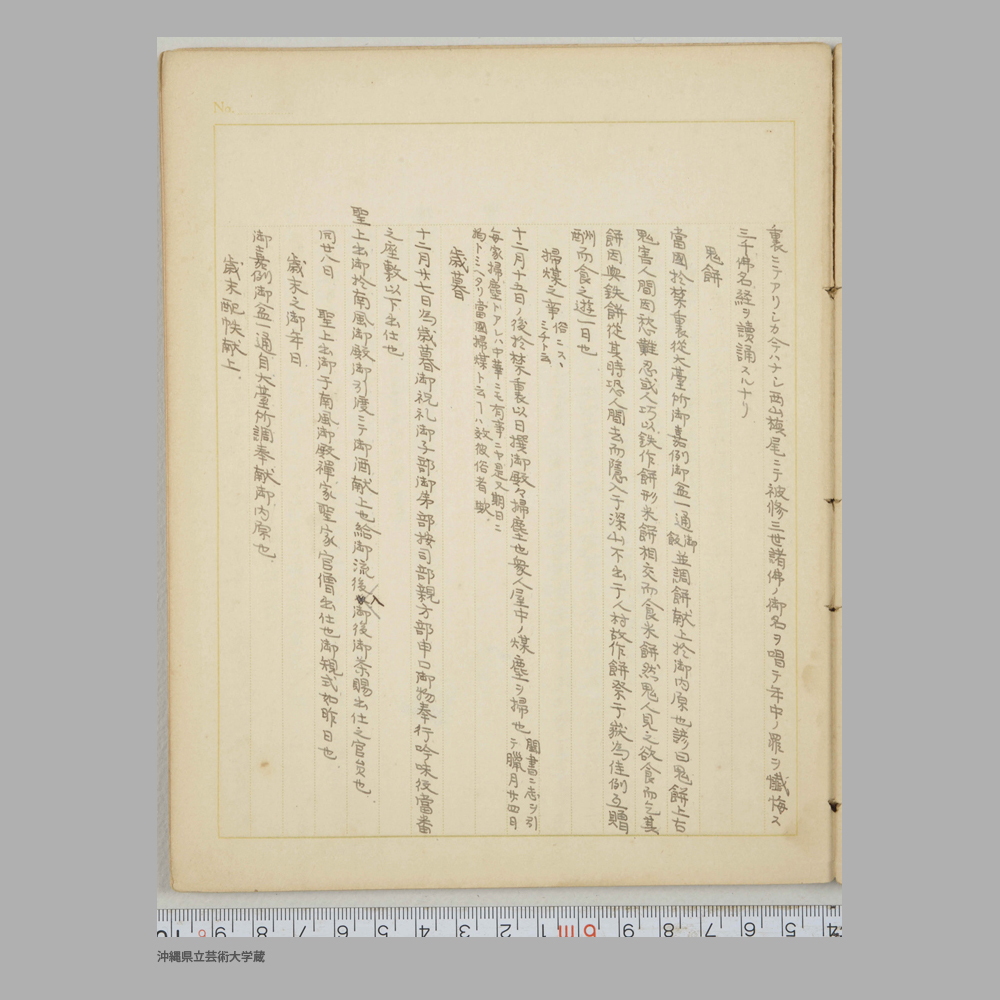 裏ニテアリシカ今ハナシ西山栂尾ニテ被修三世諸佛ノ御名ヲ唱テ年中ノ罪ヲ懺悔ス
三千佛名経ヲ讀誦スルナリ
鬼餅
當國於禁裏從大臺所御嘉例御盆一通御飯並調餅献上於御内原也諺曰鬼餅上古
鬼害人間因愁難忍或人巧以鉄作餅形米餅相交而食米餅然鬼人見之欲食而乞其
餅因與鉄餅從其時恐人間去而隱入于深山不出于人村故作餅祭于嶽為佳例互贈
酬而食之遊一日也
掃煤之事 俗ニスヽミチト云
十二月十五日ノ後於禁裏以日撰御殿々掃塵也衆人屋中ノ煤塵ヲ掃也 閩書ニ志ヲ引テ臘月廿四日
毎家掃塵トアレハ中華ニモ有事ニヤ是又期日ニ
拘トミヘタリ當國掃煤ト云ハ效彼俗者歟
歳暮
十二月廿七日為歳暮御祝礼御子部御弟部按司部親方部申口御物奉行吟味役當番
之座敷以下出仕也
聖上出御於南風御殿御引渡ニテ御酒献上也給御流後入御後御茶賜出仕之官員也
同廿八日 聖上出御于南風御殿禪家聖家官僧出仕也御規式如昨日也
歳末之御年日
御嘉例御盆一通自大臺所調奉献御内原也
歳末配帙献上
No.
沖縄県立芸術大学蔵